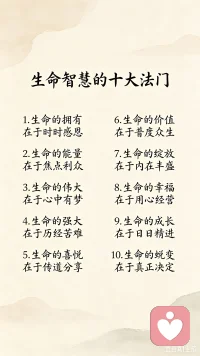 生命智慧的十大法门
1.生命的拥有
在于时时感恩
2.生命的能量
在于焦点利众
3.生命的伟大
在于心中有梦
4.生命的强大
在于历经苦难
5.生命的喜悦
在于传道分享
6.生命的价值
在于普度众生
7.生命的绽放
在于内在丰盛
8.生命的幸福
在于用心经营
9.生命的成长
在于日日精进
10.生命的蜕变
在于真正决定